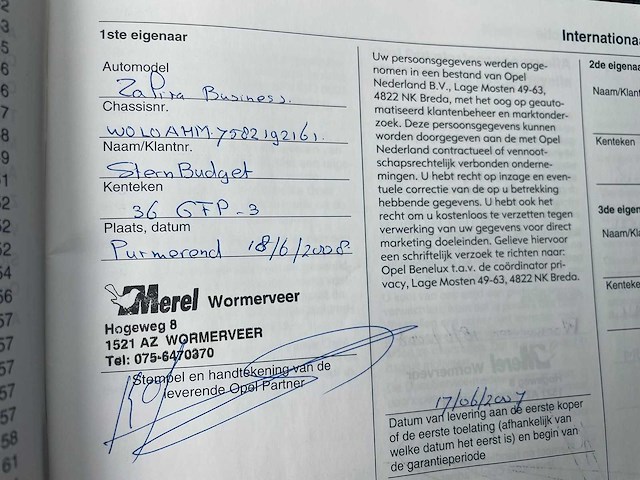 1ste eigenaar
Automodel
Zafira Business.
Chassisnr.
WOLOAHM.7582192161.
Naam/Klantnr.
SternBudget
Kenteken
36 GTP-3
Plaats, datum
Purmerend 18/6/2008
Merel Wormerveer
Hogeweg 8
1521 AZ WORMERVEER
Tel: 075-6470370
Stempel en handtekening van de
leverende Opel Partner
Uw persoonsgegevens werden opge-
nomen in een bestand van Opel
Nederland B.V., Lage Mosten 49-63,
4822 NK Breda, met het oog op geauto-
matiseerd klantenbeheer en marktonder-
zoek. Deze persoonsgegevens kunnen
worden doorgegeven aan de met Opel
Nederland contractueel of vennoot-
schapsrechtelijk verbonden onderne-
mingen. U hebt recht op inzage en even-
tuele correctie van de op u betrekking
hebbende gegevens. U hebt ook het
recht om u kostenloos te verzetten tegen
verwerking van uw gegevens voor direct
marketing doeleinden. Gelieve hiervoor
een schriftelijk verzoek te richten naar:
Opel Benelux t.a.v. de coördinator pri-
vacy, Lage Mosten 49-63, 4822 NK Breda.
17/06/2007
Datum van levering aan de eerste koper
of de eerste toelating (afhankelijk van
welke datum het eerst is) en begin van
de garantieperiode
Internationa
2de eigenaa
Naam/Klant
Kenteken
3de eigena
Naam/Kla
Kenteke